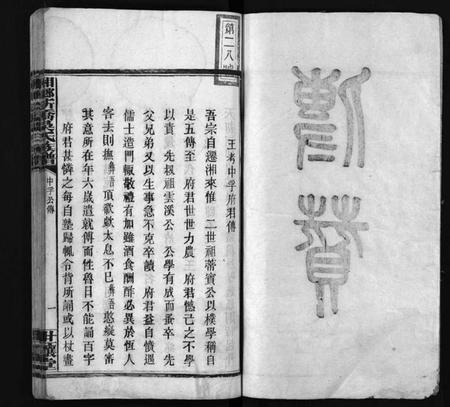 傳贊
第二八
王考中孚府君傳
吾宗自遷湘來惟 二世祖蒂賓公以樸學稱自
是五傳至 府君世世力農 府君憾己之不學
以責 先叔祖雲溪公 公學有成而蚤卒 先
父兄弟又以生事急不克卒讀 府君益自憤遇
儒士造門輒敬禮有加雖酒食酬酢必異於恆人
客去則撫 語頂歡歔太息不已 語憨縱莫審
其意所在年六歲遣就傅而性魯日不能誦百字
府君甚憐之每自塾歸輒令背所誦或以杖畫
中孚公傳
一